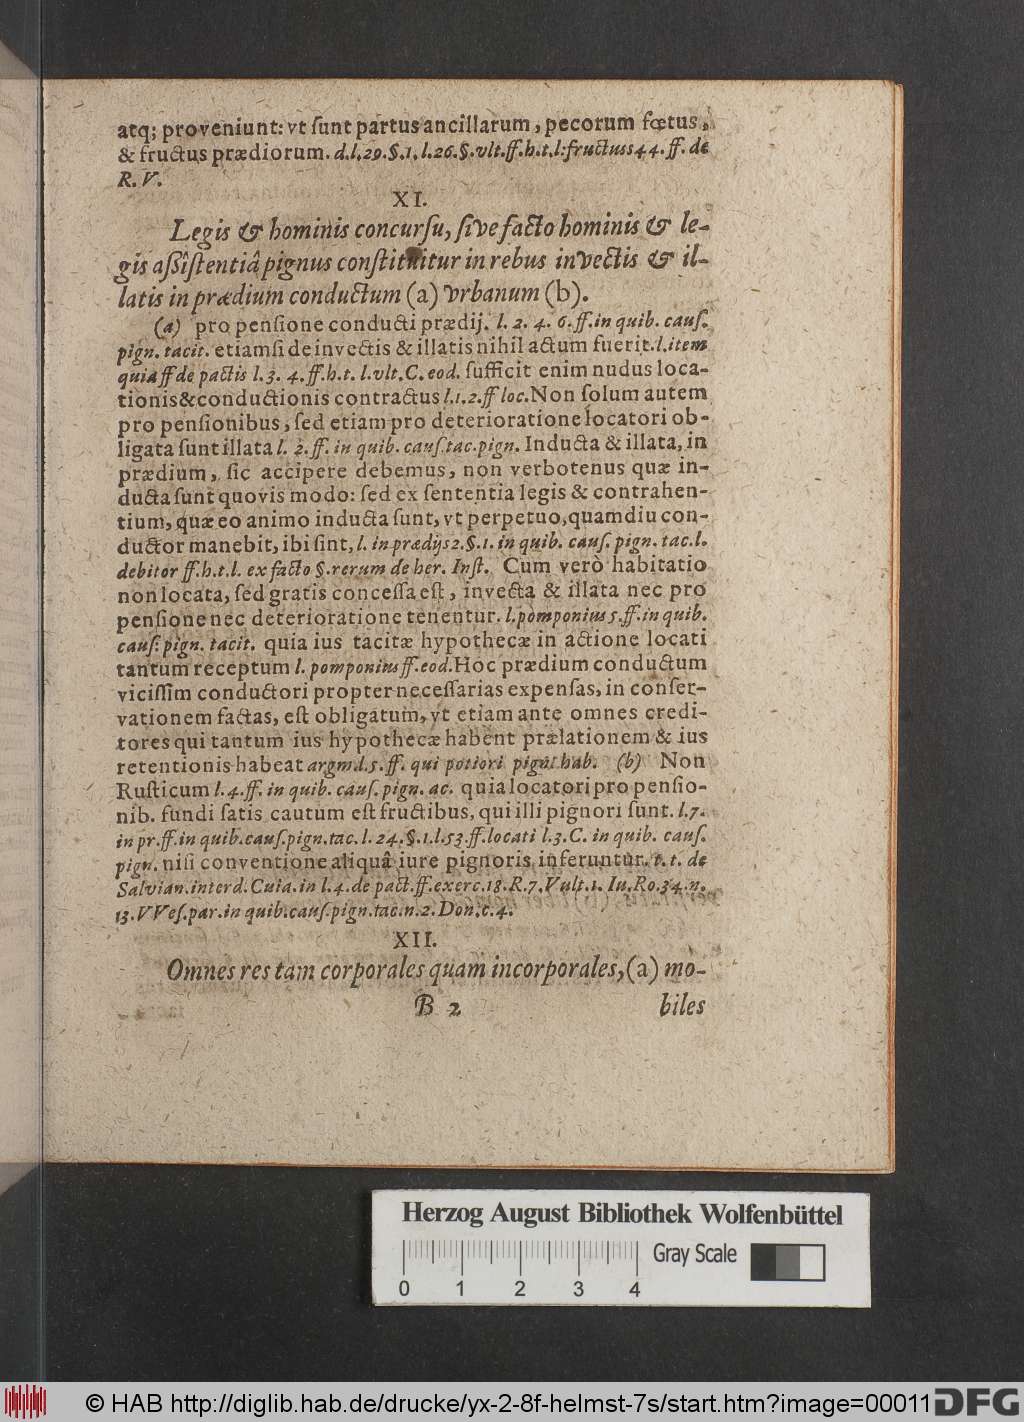 atq; proveniunt: vt ſunt partus ancillarum, pecorum fœtus,
& fructus prædiorum. d.l.29.§.1.l.26.§.vlt.ff.h.t.l:fructuss44.ff. de
R. V.
XI.
Legis & hominis concurſu, ſive facto hominis & le-
gis aſsiſtentiâ pignus conſtituitur in rebus invectis & il-
latis in prædium conductum (a) vrbanum (b).
(a) pro penſione conducti prædij. l. 2. 4. 6. ff. in quib. cauſ.
pign. tacit. etiamſi de invectis & illatis nihil actum fuerit. l. item
quia ff de pactis l. 3. 4. ff. h. t. l. vlt. C. eod. ſufficit enim nudus loca-
tionis & conductionis contractus l. 1. 2. ff loc. Non ſolum autem
pro penſionibus, ſed etiam pro deterioratione locatori ob-
ligata ſunt illata l. 2. ff. in quib. cauſ. tac. pign. Inducta & illata, in
prædium, ſic accipere debemus, non verbotenus quæ in-
ducta ſunt quovis modo: ſed ex ſententia legis & contrahen-
tium, quæ eo animo inducta ſunt, vt perpetuo, quamdiu con-
ductor manebit, ibi ſint, l. in prædijs 2. §. 1. in quib. cauſ. pign. tac. l.
debitor ff. h. t. l. ex facto §. rerum de her. Inſt. Cum verò habitatio
non locata, ſed gratis conceſſa eſt, invecta & illata nec pro
penſione nec deterioratione tenentur. l. pomponius 5. ff. in quib.
cauſ: pign. tacit. quia ius tacitæ hypothecæ in actione locati
tantum receptum l. pomponius ff. eod. Hoc prædium conductum
viciſſim conductori propter neceſſarias expenſas, in conſer-
vationem factas, eſt obligatum, vt etiam ante omnes credi-
tores qui tantum ius hypothecæ habent prælationem & ius
retentionis habeat argm. l. 5. ff. qui potiori pign. hab. (b) Non
Ruſticum l. 4. ff. in quib. cauſ. pign. ac. quia locatori pro penſio-
nib. fundi ſatis cautum eſt fructibus, qui illi pignori ſunt. l. 7.
in pr. ff. in quib. cauſ. pign. tac. l. 24. §. 1. l. 53. ff. locati l. 3. C. in quib. cauſ.
pign. niſi conventione aliquâ iure pignoris inferuntur. t. t. de
Salvian. interd. Cuia. in l. 4. de pact. ff. exerc. 18. R. 7. Vult. 1. Iu. Ro. 34. n.
13. VVeſ. par. in quib. cauſ. pign. tac. n. 2. Don. c. 4.
XII.
Omnes res tam corporales quam incorporales, (a) mo-
B 2 biles
Herzog August Bibliothek Wolfenbüttel
Gray Scale
0 1 2 3 4
© HAB http://diglib.hab.de/drucke/yx-2-8f-helmst-7s/start.htm?image=00011
DFG